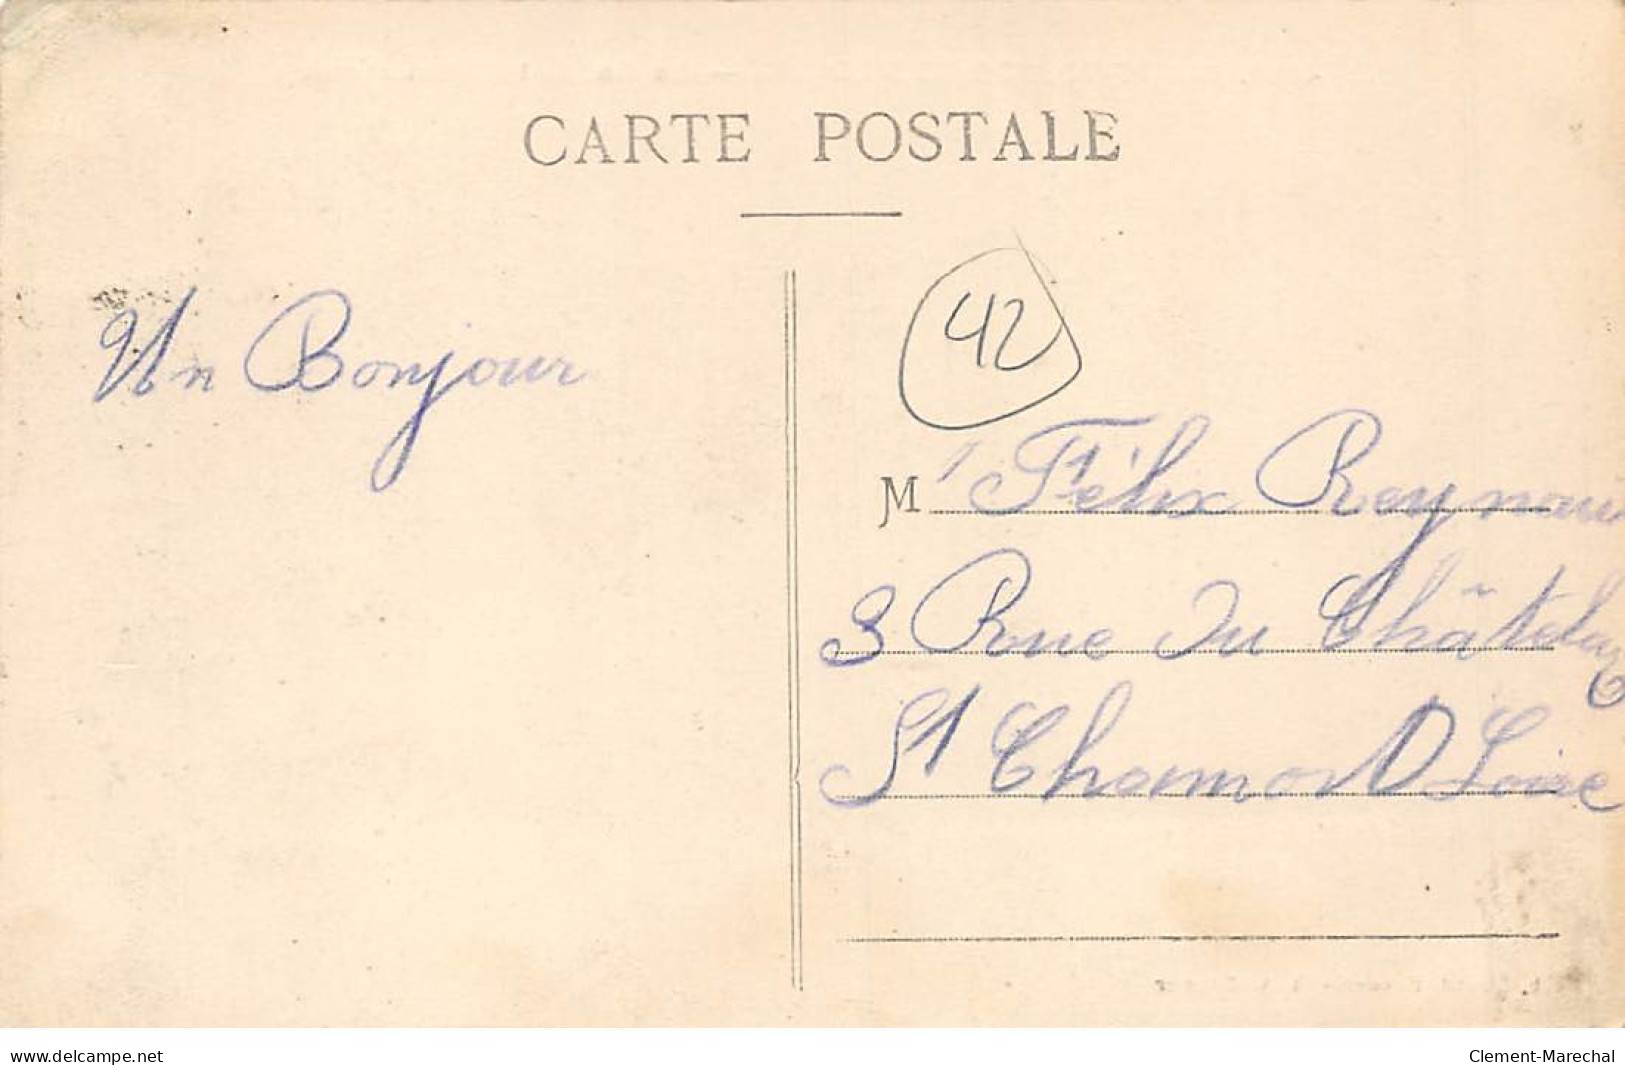 CARTE POSTALE
Un Bonjour
42
M Félix Reynaud
3 Rue Du Châtelus
St Chamond Loire
www.delcampe.net
Clement-Marechal